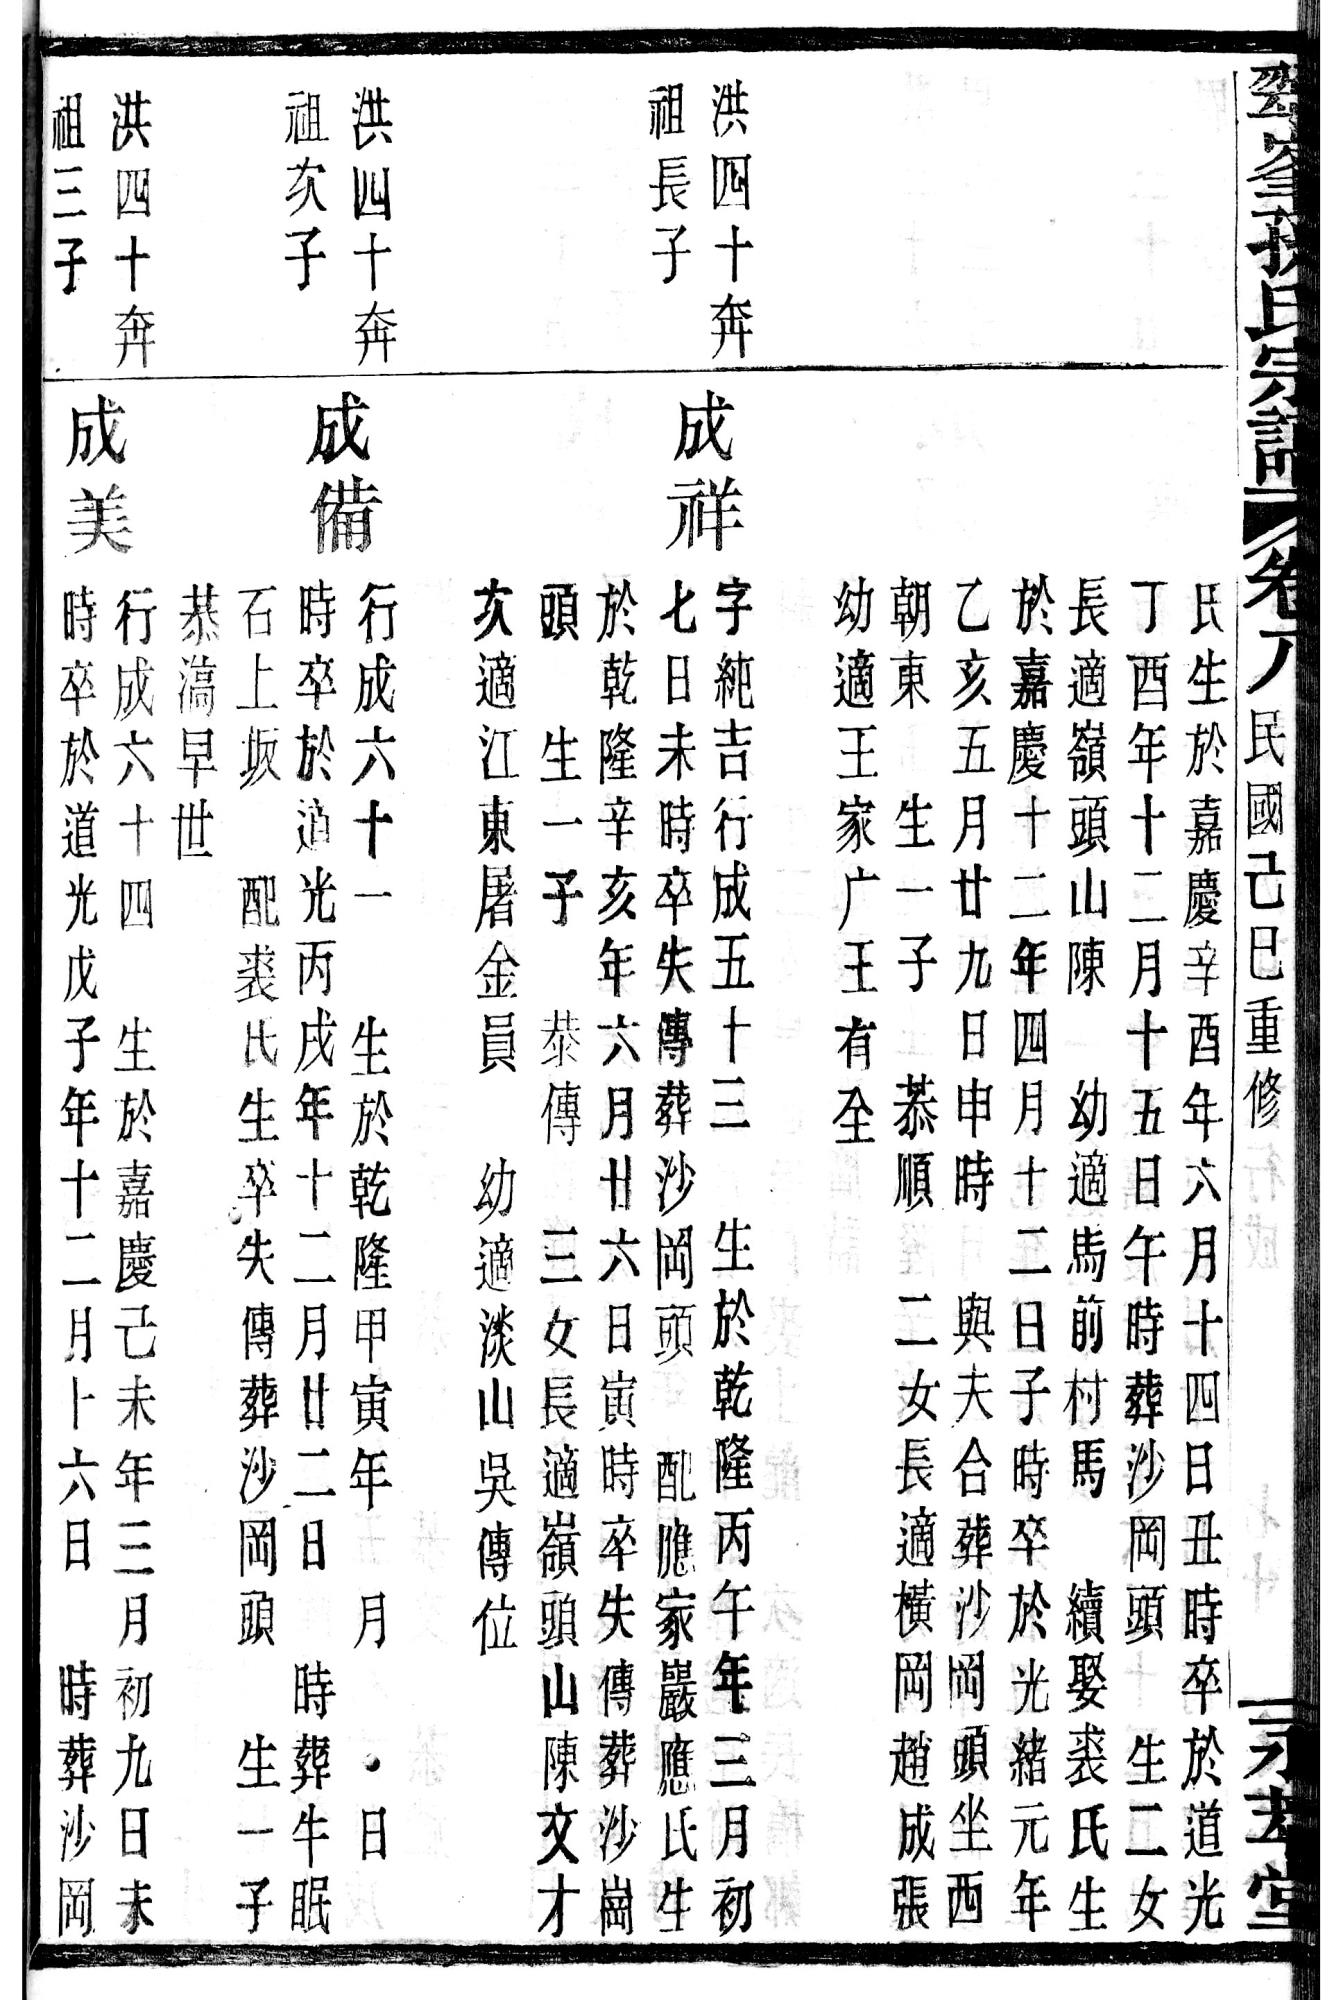 翠峯孫氏宗譜 卷八 民國己巳重修 永孝堂
氏生於嘉慶辛酉年六月十四日丑時卒於道光
丁酉年十二月十五日午時葬沙岡頭 生二女
長適嶺頭山陳 幼適馬前村馬 續娶裘氏生
於嘉慶十二年四月十二日子時卒於光緒元年
乙亥五月廿九日申時 與夫合葬沙岡頭坐西
朝東 生一子 恭順 二女長適橫岡趙成張
幼適王家广王有全
洪四十奔
祖長子
成祥
字純吉行成五十三 生於乾隆丙午年三月初
七日未時卒失傳葬沙岡頭 配應家巖應氏生
於乾隆辛亥年六月廿六日寅時卒失傳葬沙崗
頭 生一子 恭傳 三女長適嶺頭山陳文才
次適江東屠金員 幼適淡山吳傳位
洪四十奔
祖次子
成備
行成六十一 生於乾隆甲寅年 月 日
時卒於道光丙戌年十二月廿二日 時葬牛眠
石上坂 配裘氏生卒失傳葬沙岡頭 生一子
恭滈早世
洪四十奔
祖三子
成美
行成六十四 生於嘉慶己未年三月初九日未
時卒於道光戊子年十二月十六日 時葬沙岡